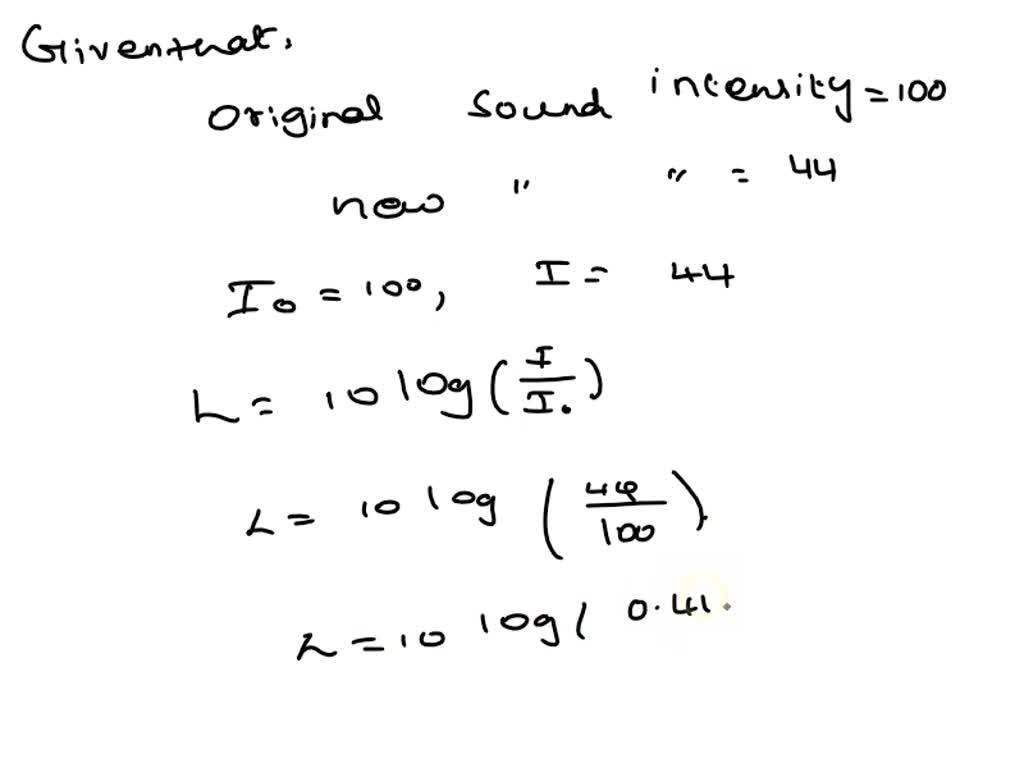 Given that,
Original Sound intensity = 100
new " " = 44
I₀ = 100, I = 44
L = 10 log (I/I₀)
L = 10 log (44/100).
L = 10 log ( 0.41.